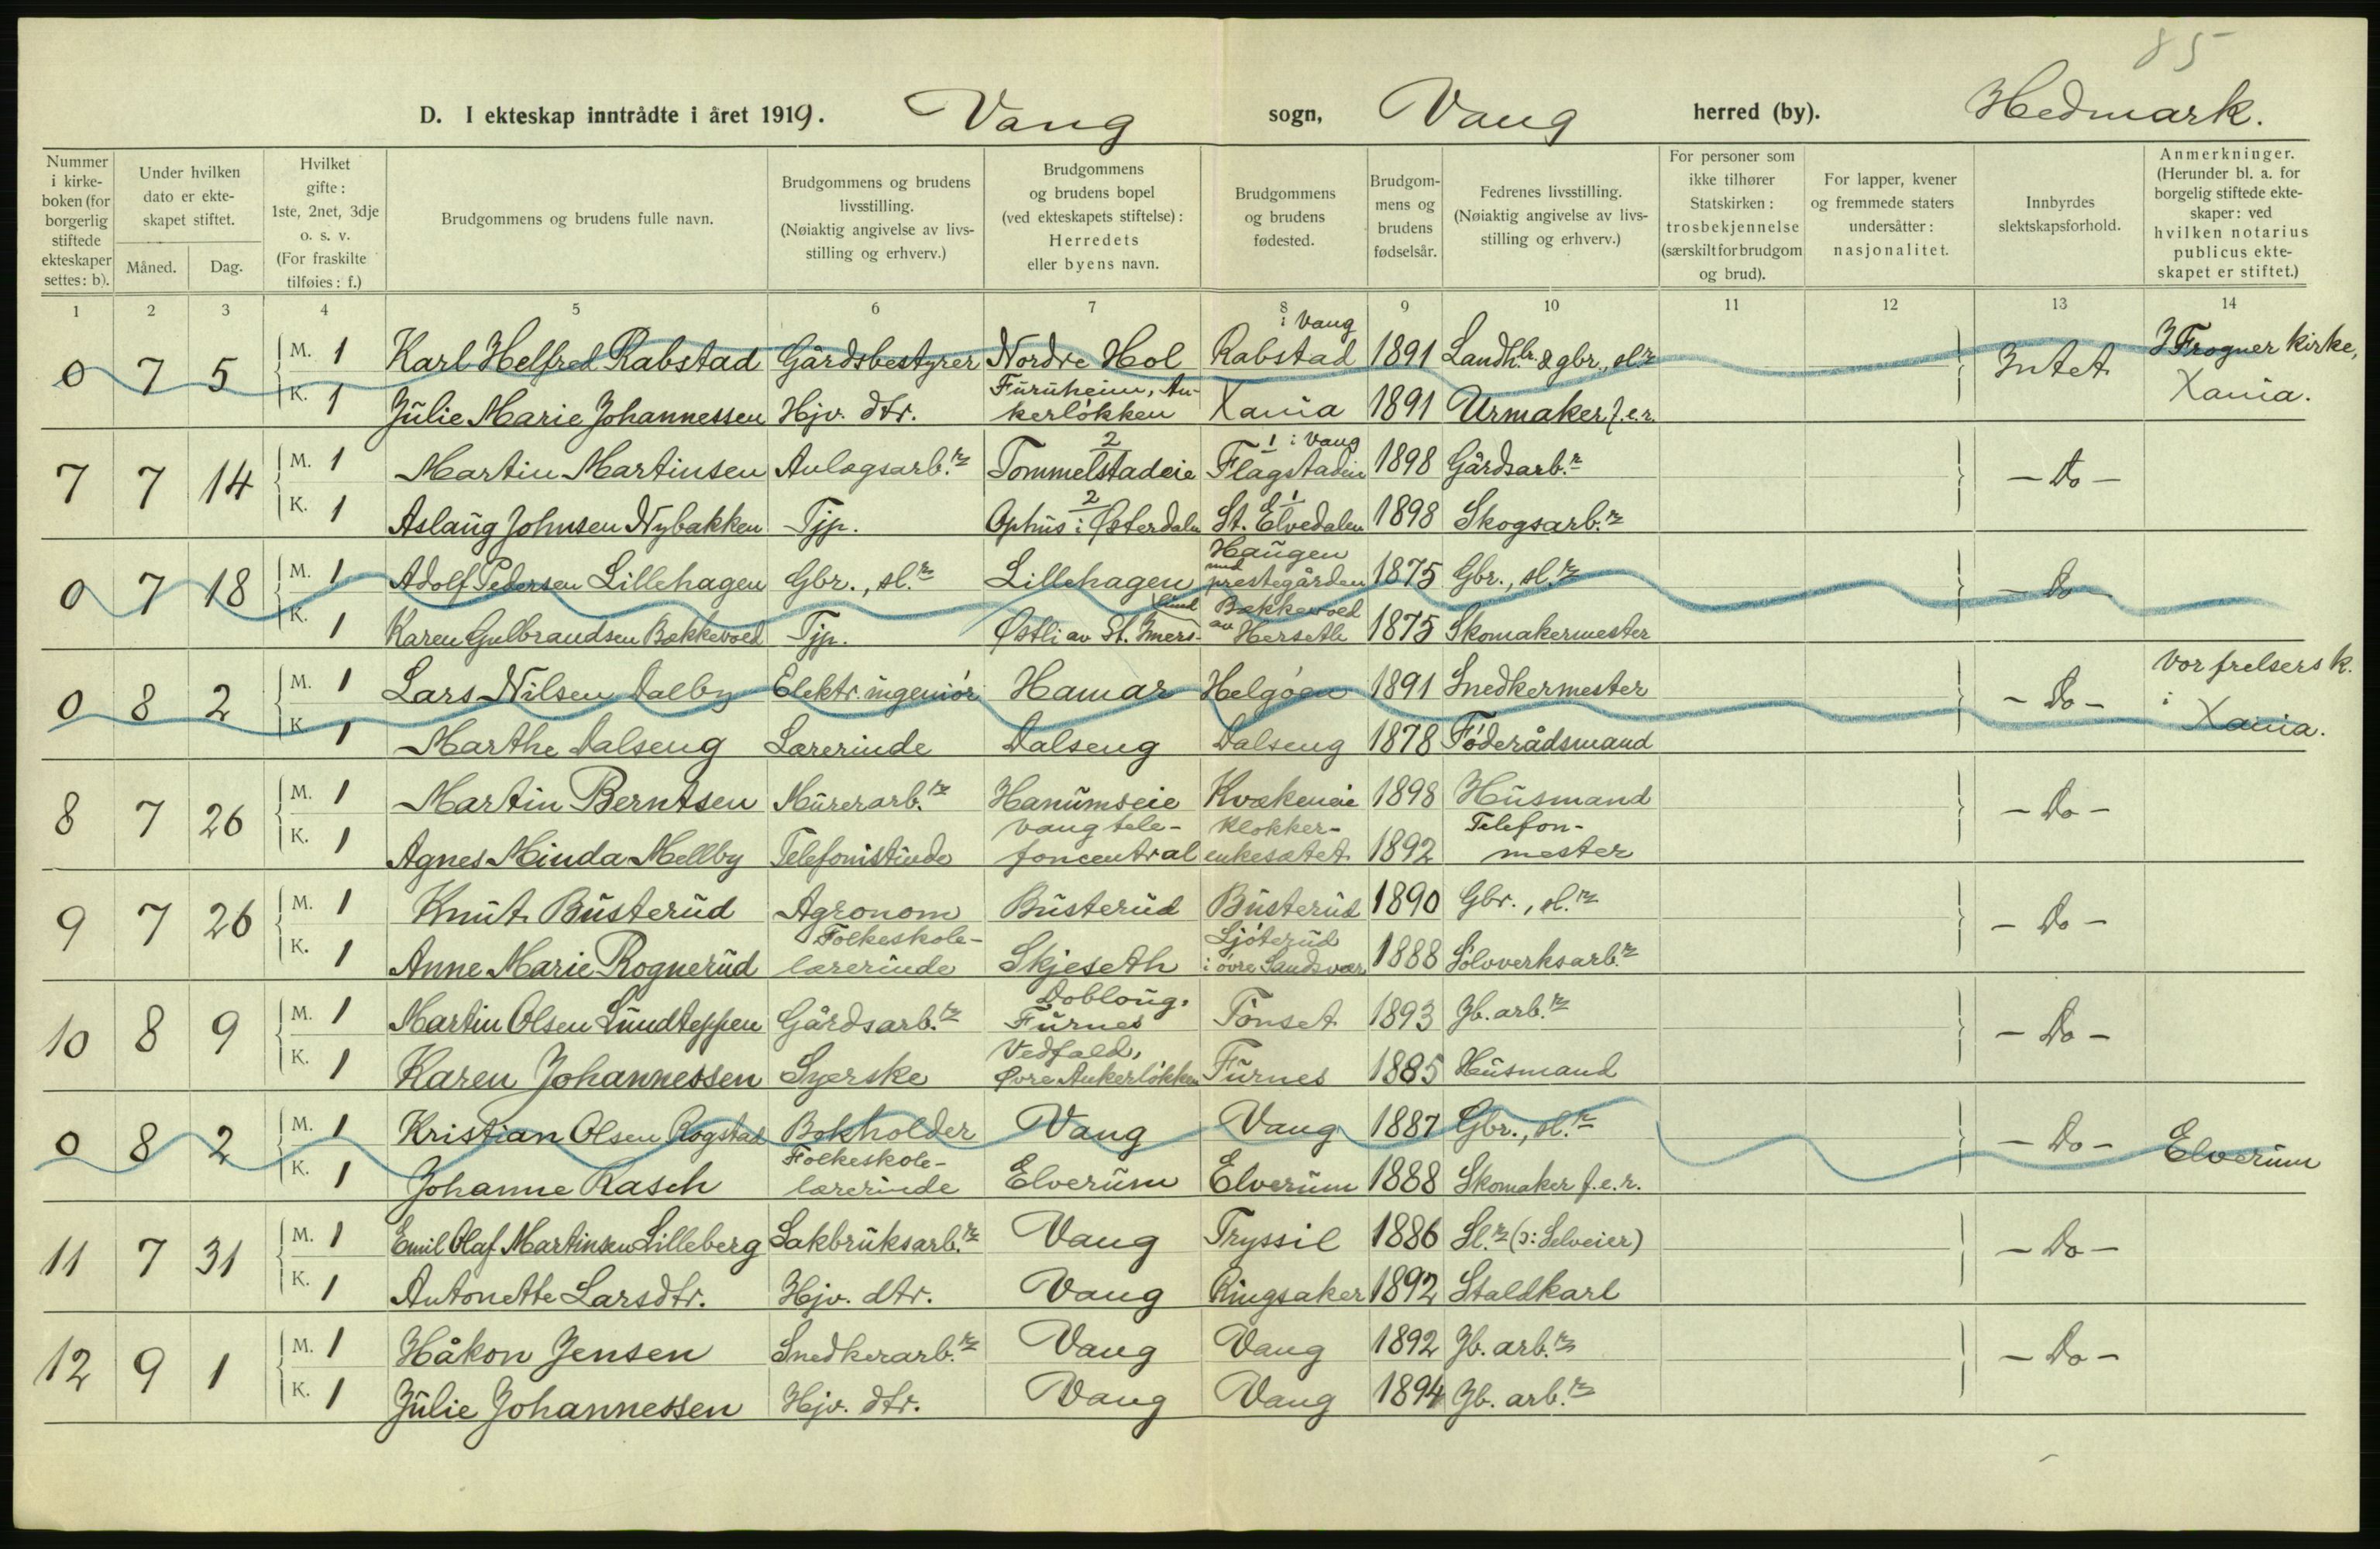 85
D. I ekteskap inntrådte i året 1919. Vang sogn, Vang herred (by). Hedmark.
Nummer i kirke-boken (for borgerlig stiftede ekteskaper settes: b).
Under hvilken dato er ekte-skapet stiftet.
Måned.
Dag.
Hvilket gifte: 1ste, 2net, 3dje o. s. v. (For fraskilte tilføies: f.)
Brudgommens og brudens fulle navn.
Brudgommens og brudens livsstilling. (Nøiaktig angivelse av livs-stilling og erhverv.)
Brudgommens og brudens bopel (ved ekteskapets stiftelse): Herredets eller byens navn.
Brudgommens og brudens fødested.
Brudgom-mens og brudens fødselsår.
Fedrenes livsstilling. (Nøiaktig angivelse av livs-stilling og erhverv.)
For personer som ikke tilhører Statskirken: trosbekjennelse (særskilt for brudgom og brud).
For lapper, kvener og fremmede staters undersåtter: nasjonalitet.
Innbyrdes slektskapsforhold.
Anmerkninger. (Herunder bl. a. for borgelig stiftede ekte-skaper: ved hvilken notarius publicus ekte-skapet er stiftet.)
1 2 3 4 5 6 7 8 9 10 11 12 13 14
0 7 5 M. 1 Karl Helfred Rabstad Gårdsbestyrer Nordre Hol Rabstad i Vang 1891 Landh.br. & gbr., sl.r Intet I Frogner kirke, Xania.
K. 1 Julie Marie Johannessen Hjv. dtr. Furuheim, An-kerløkken Xania 1891 Urmaker f.e.r.
7 7 14 M. 1 Martin Martinsen Anlægsarb.r 2 Tommelstadeie 1 i Vang Flagstadeie 1898 Gårdsarb.r - Do -
K. 1 Aslaug Johnsen Nybakken Tjp. 2 Ophus i Østerdalen 1 St. Elvedalen 1898 Skogsarb.r
0 7 18 M. 1 Adolf Pedersen Lillehagen Gbr., sl.r Lillehagen Haugen und prestegården 1875 Gbr., sl.r - Do -
K. 1 Karen Gulbrandsen Bekkevold Tjp. Østli av St. Imers-lund Bækkevold av Herseth 1875 Skomakermester
0 8 2 M. 1 Lars Nilsen Dalby Elektr. ingeniør Hamar Helgøen 1891 Snedkermester - Do - Vor frelsers k. i Xania.
K. 1 Marthe Dalseng Lærerinde Dalseng Dalseng 1878 Føderådsmand
8 7 26 M. 1 Martin Berntsen Murerarb.r Hanumseie Kvækeneie 1898 Husmand - Do -
K. 1 Agnes Minda Mellby Telefonistinde Vang tele-foncentral Klokker-enkesætet 1892 Telefon-mester
9 7 26 M. 1 Knut Busterud Agronom Busterud Busterud 1890 Gbr., sl.r - Do -
K. 1 Anne Marie Rognerud Folkeskole-lærerinde Skjeseth Ljøterud i øvre Sandsvær 1888 Sølvverksarb.r
10 8 9 M. 1 Martin Olsen Lundteppen Gårdsarb.r Dobloug, Furnes Tønset 1893 Jb. arb.r - Do -
K. 1 Karen Johannessen Syerske Vedfald, Øvre Ankerløkken Furnes 1885 Husmand
0 8 2 M. 1 Kristian Olsen Rogstad Bokholder Vang Vang 1887 Gbr., sl.r - Do - Elverum
K. 1 Johanne Rasch Folkeskole-lærerinde Elverum Elverum 1888 Skomaker f.e.r.
11 7 31 M. 1 Emil Olaf Martinsen Lilleberg Sakbruksarb.r Vang Tryssil 1886 Sl.r (ɔ: Selveier) - Do -
K. 1 Antonette Larsdtr. Hjv. dtr. Vang Ringsaker 1892 Staldkarl
12 9 1 M. 1 Håkon Jensen Snedkerarb.r Vang Vang 1892 Jb. arb.r - Do -
K. 1 Julie Johannessen Hjv. dtr. Vang Vang 1894 Jb. arb.r